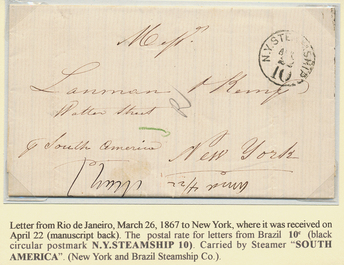 Messrs.
N.Y. STEAMSHIP
10
Lanman & Kemp
Water Street
p South America
New York
Letter from Rio de Janeiro, March 26, 1867 to New York, where it was received on
April 22 (manuscript back). The postal rate for letters from Brazil 10c (black
circular postmark N.Y.STEAMSHIP 10). Carried by Steamer "SOUTH
AMERICA". (New York and Brazil Steamship Co.).